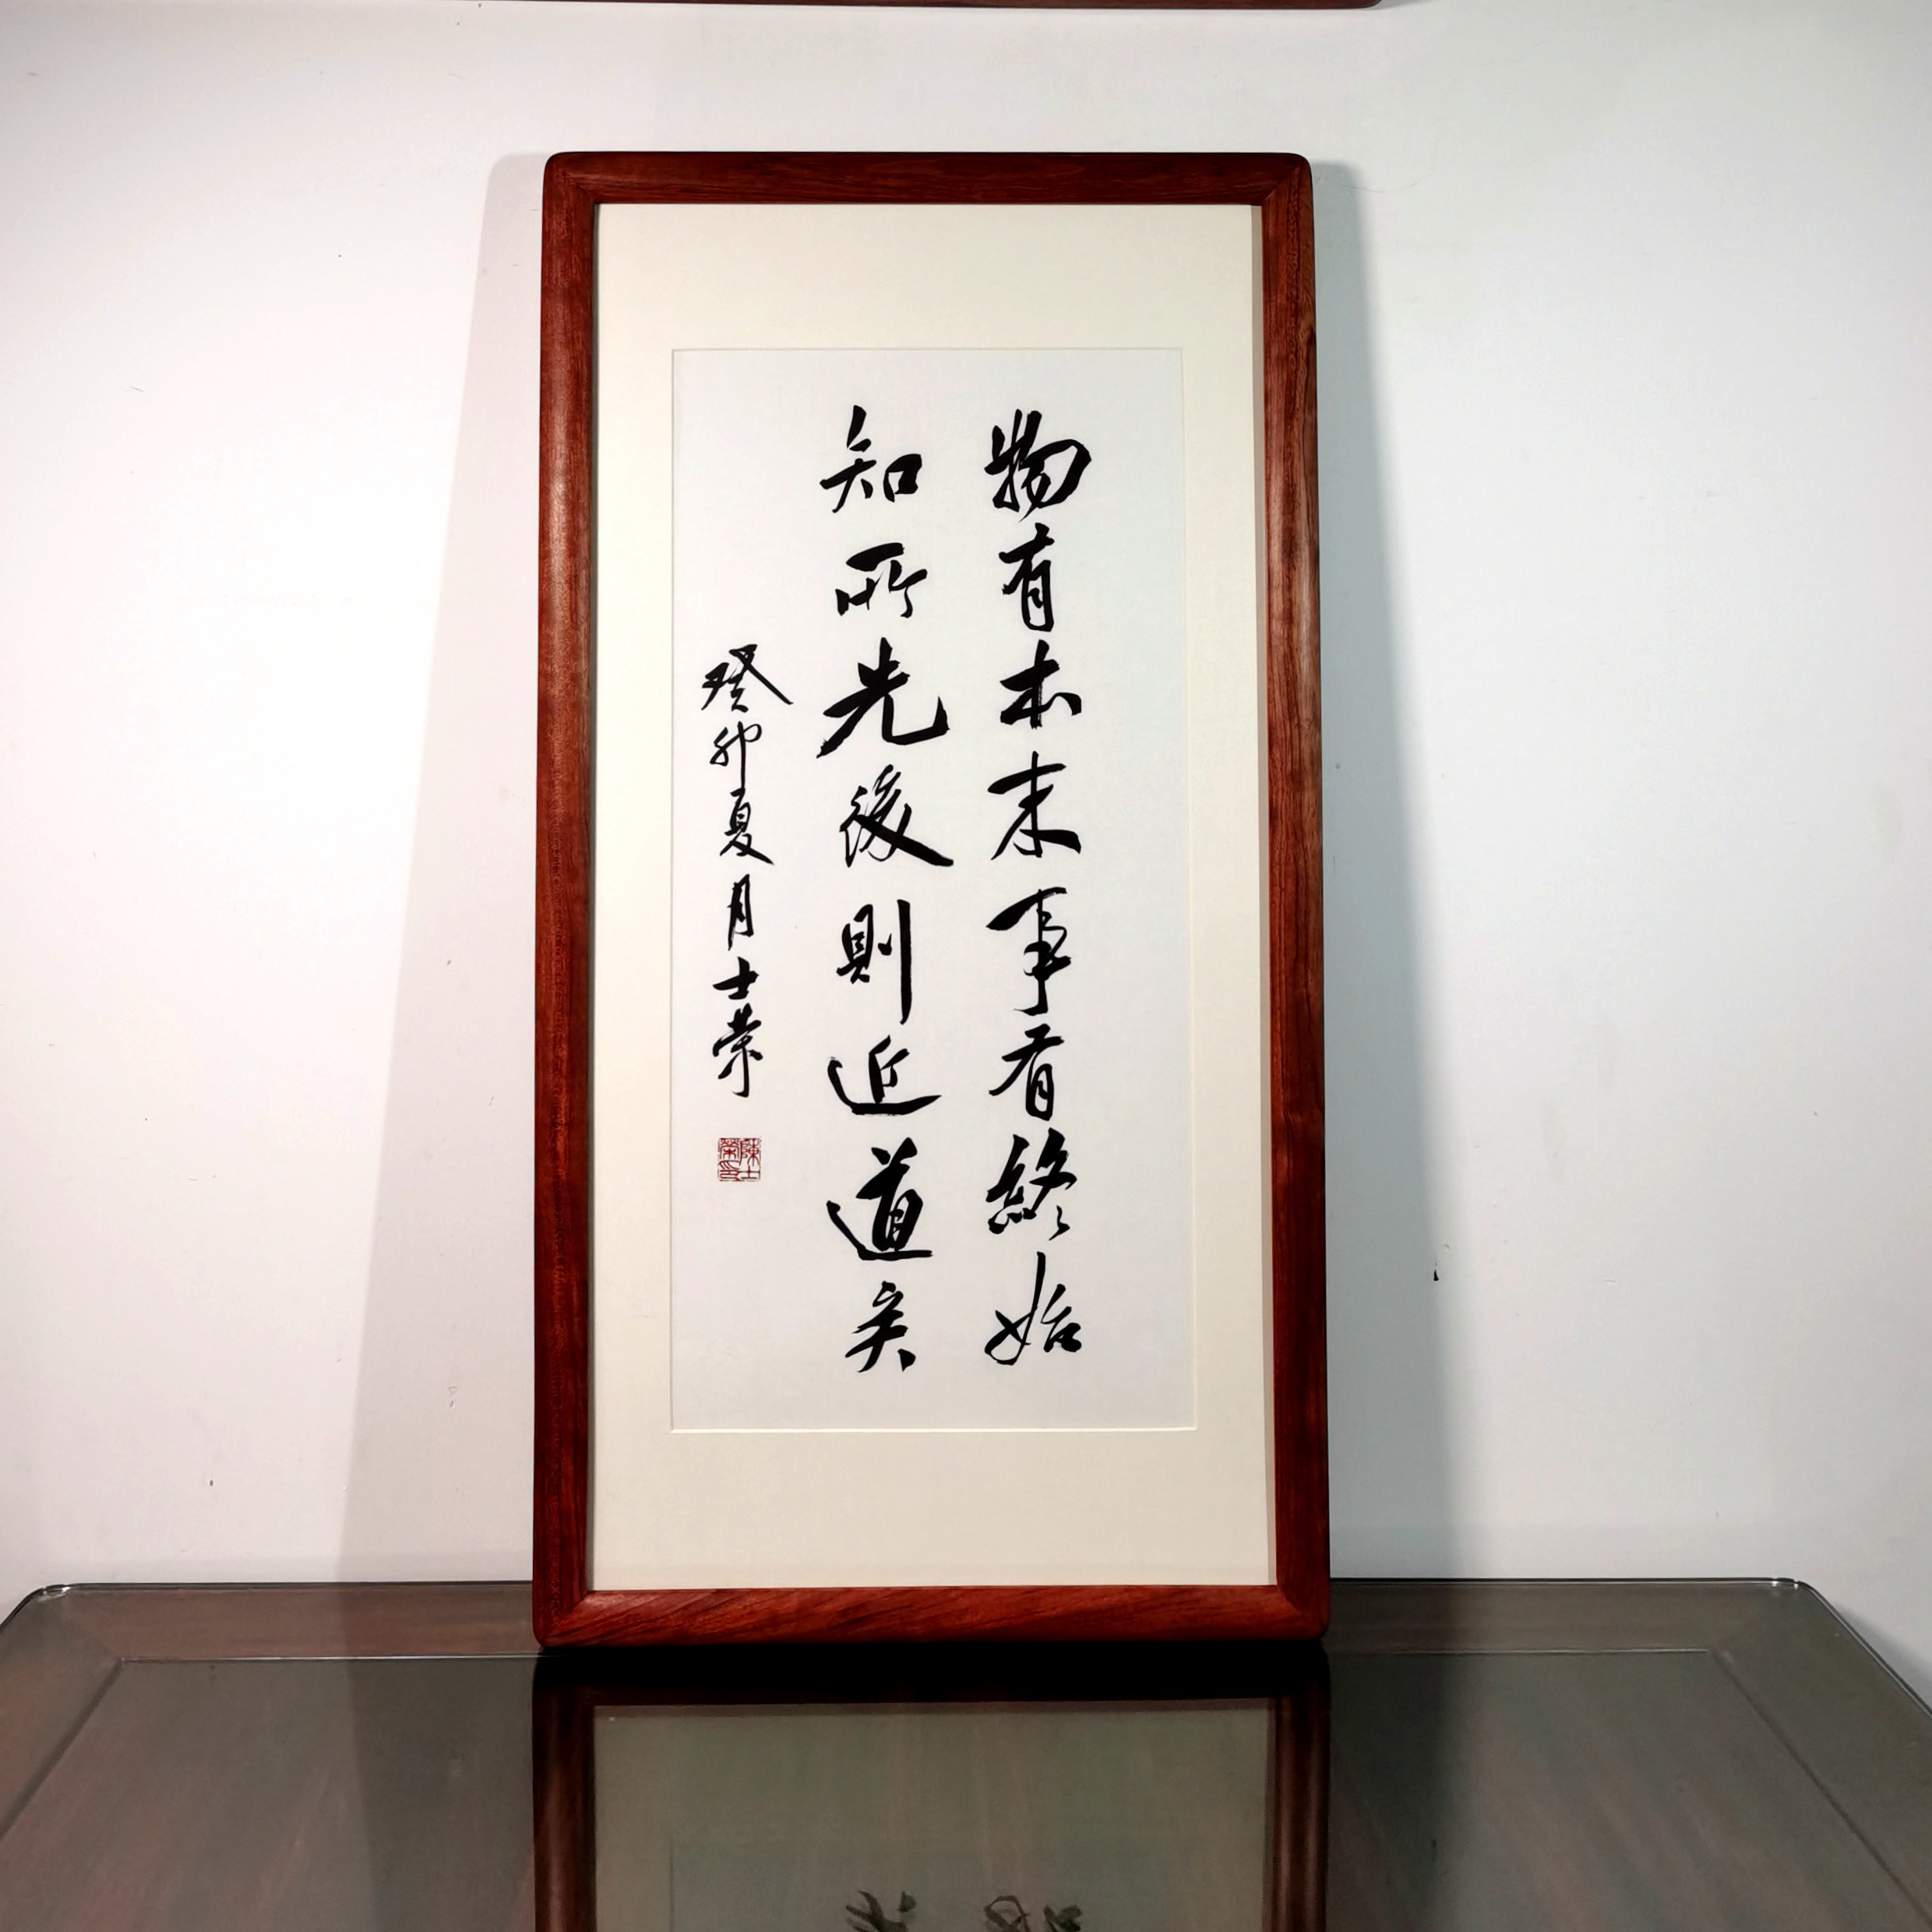 物有本末事有終始
知所先後則近道矣
癸卯夏月士荣
陳士榮印